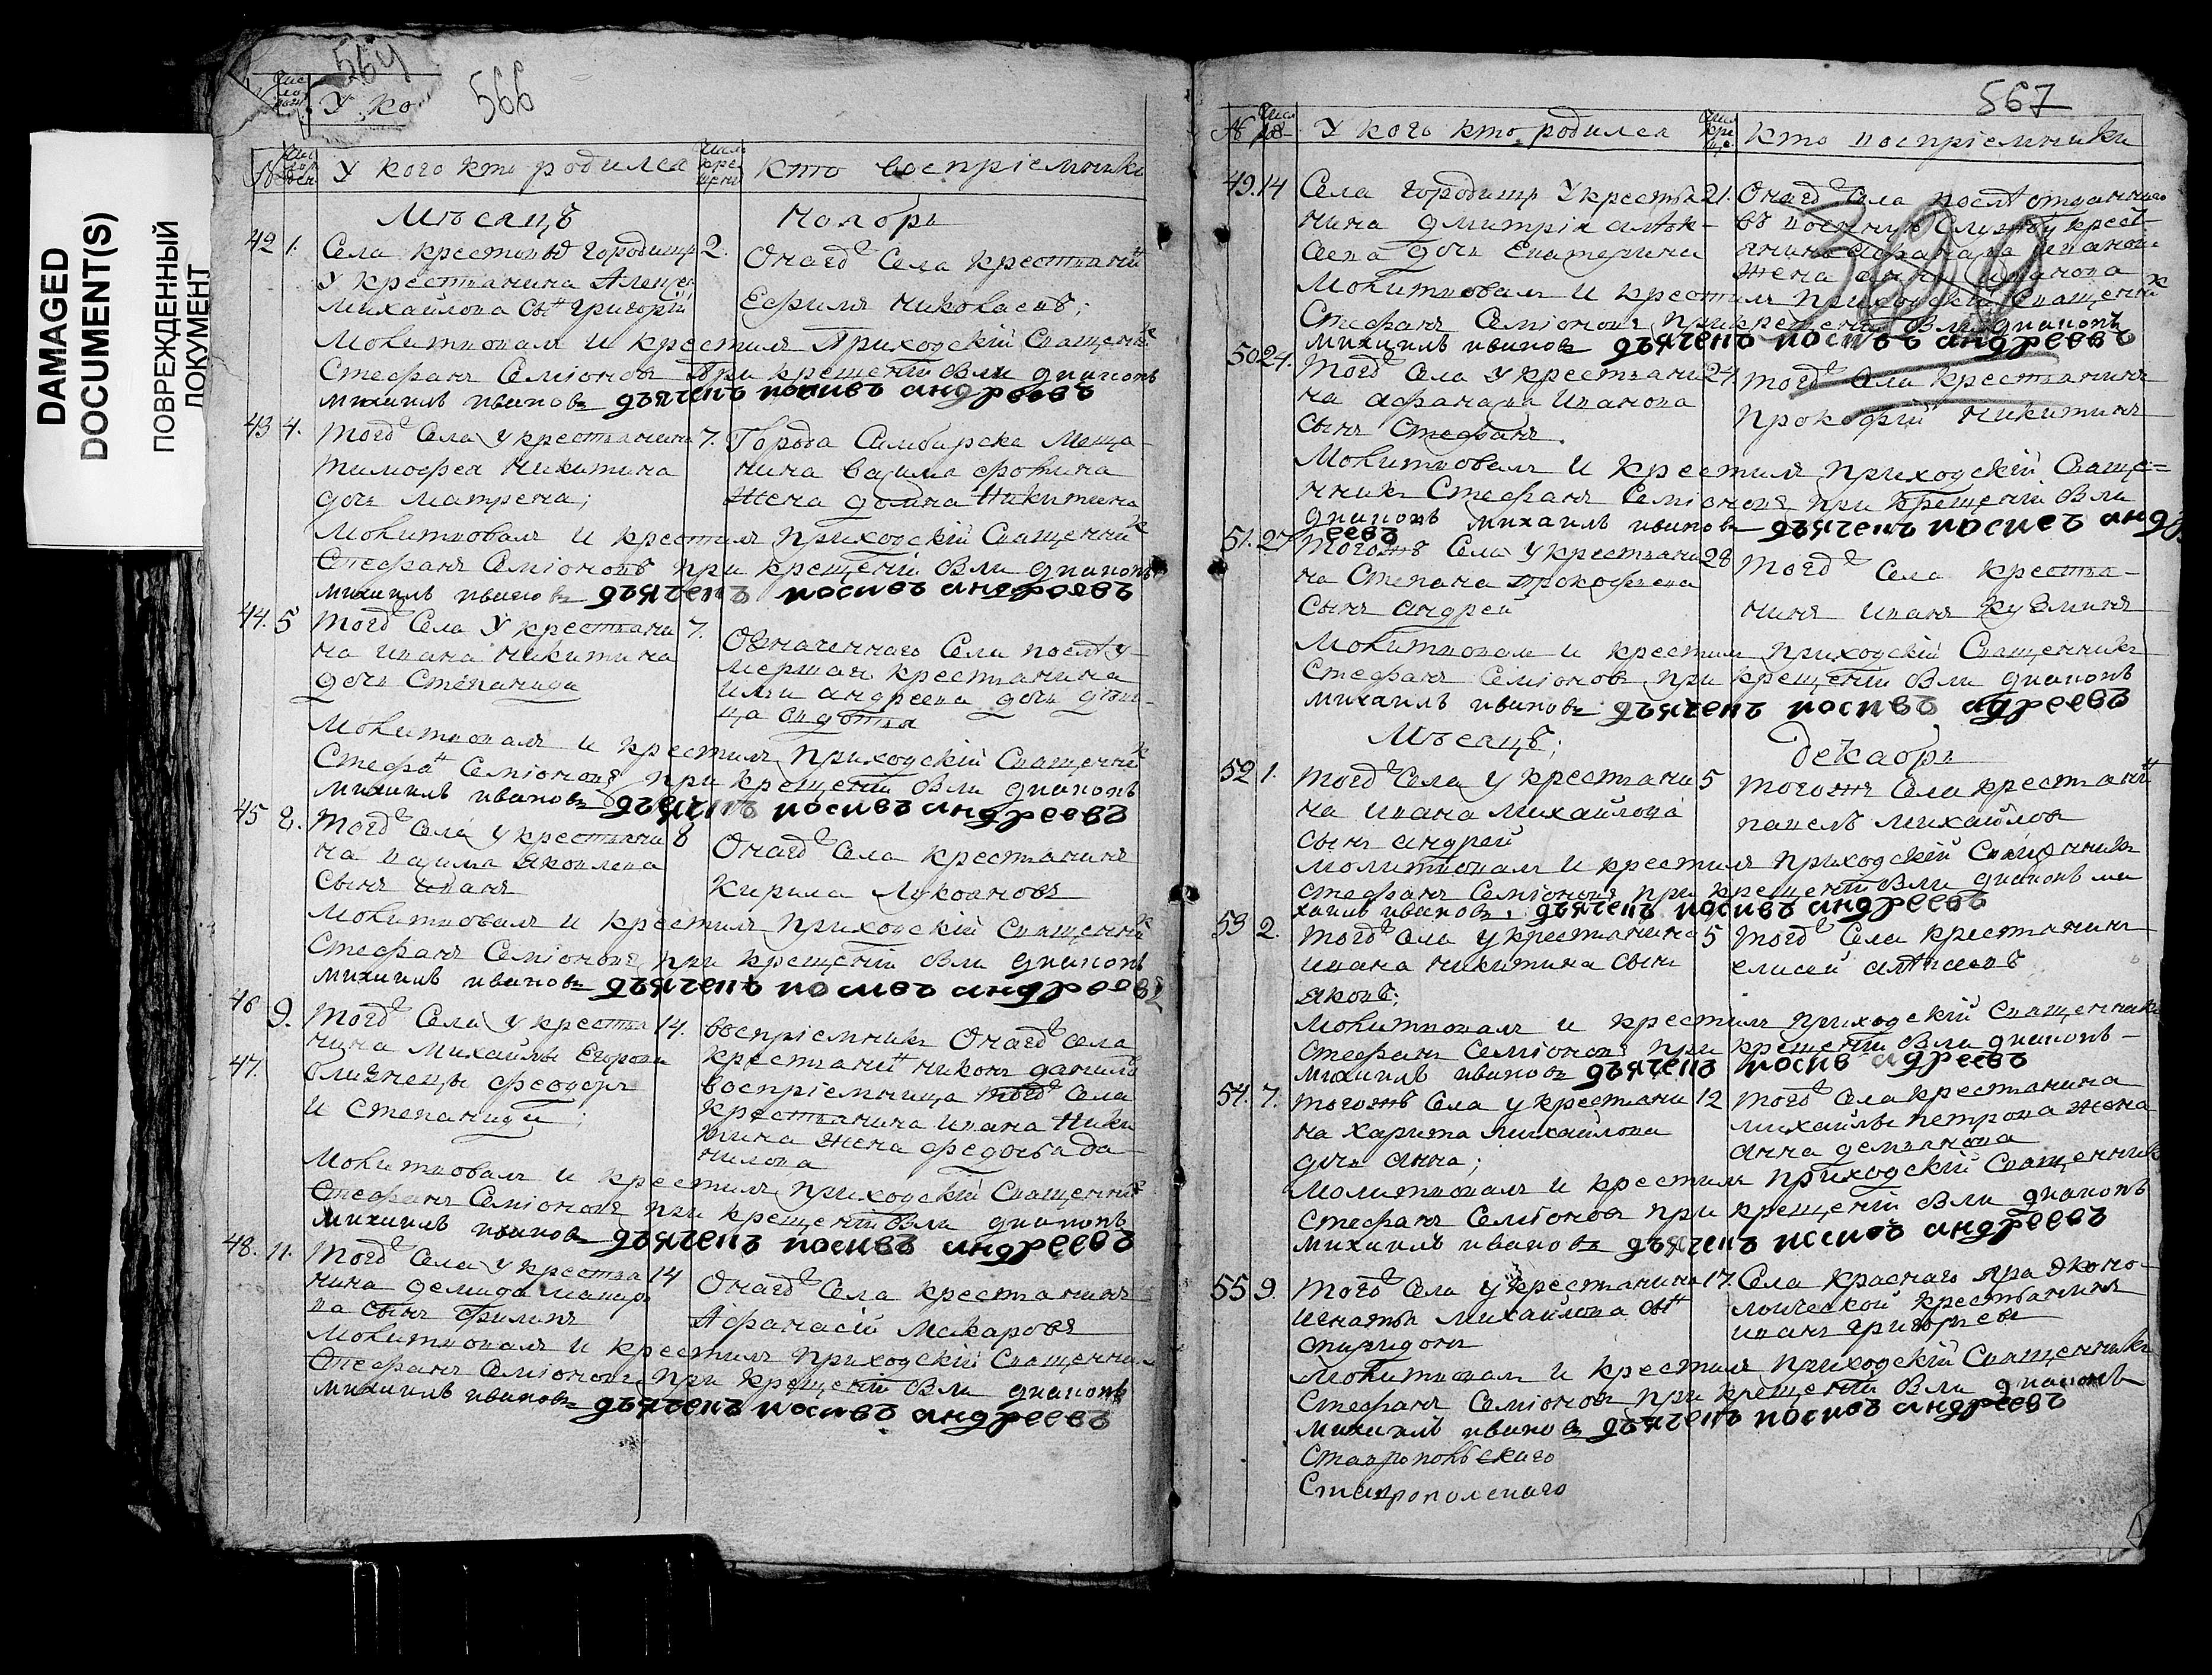 DAMAGED
DOCUMENT(S)
ПОВРЕЖДЕННЫЙ
ДОКУМЕНТ
564
У ко
566
№
У кого кто родился
кто воспріемники
Мѣсяцъ
ноября
42 1. Села крестовыѣ городищи
у крестьянина Алексея
Михайлова сынъ григорій
2. Онагожъ Села крестьянинъ
Ефимъ николаевъ;
Молитвовалъ и крестилъ Приходскій Священникъ
Стефанъ Семіоновъ При крещеніи были діаконъ
михаилъ ивановъ дьячекъ иосивъ андреевъ
43 4. тогожъ Села у крестьянина
тимофея никитина
дочь матрена;
7. Города Симбирска меща-
нина василья фролина
жена домна никитина
Молитвовалъ и крестилъ приходскій Священникъ
Стефанъ Семіоновъ при крещеніи были діаконъ
михаилъ ивановъ дьячекъ иосивъ андреевъ
44. 5 тогожъ Села у крестьяни
на ивана никитина
дочь Степанида
7. Означеннаго Села послѣ у-
мершаго крестьянина
ильи андреева дочь дѣви-
ца авдотья
Молитвовалъ и крестилъ приходскій Священникъ
Стефанъ Семіоновъ при крещеніи были діаконъ
михаилъ ивановъ дьячекъ иосивъ андреевъ
45 8. тогожъ Села у крестьяни
на василья яковлева
сынъ иванъ
8 Онагожъ Села крестьянинъ
Кирила Лукояновъ
Молитвовалъ и крестилъ приходскій Священникъ
Стефанъ Семіоновъ при крещеніи были діаконъ
михаилъ ивановъ дьячекъ иосивъ андреевъ
46 9. тогожъ Села у крестья
нина михайлы Егорова
47. близнецы феодоръ
и Степанида;
14. воспріемникъ Онагожъ Села
крестьянинъ никонъ данилов
воспріемница тогожъ Села
крестьянина ивана ники
тина жена федосья да-
нилова
Молитвовалъ и крестилъ приходскій Священникъ
Стефанъ Семіоновъ при крещеніи были діаконъ
михаилъ ивановъ дьячекъ иосивъ андреевъ
48. 11. тогожъ Села у крестья
нина демида макаро
ва сынъ филипъ
14 Онагожъ Села крестьянинъ
Афанасій Макаровъ
Молитвовалъ и крестилъ приходскій Священникъ
Стефанъ Семіоновъ при крещеніи были діаконъ
михаилъ ивановъ дьячекъ иосивъ андреевъ
567
№
У кого кто родился
кто воспріемники
49. 14 Села городищъ У крестья
нина дмитрія алѣк-
сеева дочь Екатерина
21. Онагожъ Села послѣ отданнаго
въ военную службу крест-
янина афанасья иванова
жена анна иванова
380
Молитвовалъ и крестилъ приходскій Священникъ
Стефанъ Семіоновъ при крещеніи были діаконъ
михаилъ ивановъ дьячекъ иосивъ андреевъ
50 24. тогожъ Села у крестьяни
на афанасья иванова
сынъ Стефанъ.
24. тогожъ Села крестьянинъ
прокофій никитинъ
Молитвовалъ и крестилъ приходскій Свяще=
нникъ Стефанъ Семіоновъ при крещеніи были
діаконъ михаилъ ивановъ дьячекъ иосивъ андр
еевъ
51. 27 тогожъ Села у крестьяни
на Степана прокофьева
сынъ андрей
28 тогожъ Села крестья-
нинъ иванъ кузминъ
Молитвовалъ и крестилъ приходскій Священникъ
Стефанъ Семіоновъ при крещеніи были діаконъ
михаилъ ивановъ дьячекъ иосивъ адреевъ
Мѣсяцъ;
декабрь
52 1. тогожъ Села у крестьяни
на ивана михайлова
сынъ андрей
5 тогожъ Села крестьянинъ
павелъ михайловъ
молитвовалъ и крестилъ приходскій Священникъ
Стефанъ Семіоновъ при крещеніи были діаконъ ми
хаилъ ивановъ. дьячекъ иосивъ андреевъ
53 2. тогожъ Села у крестьянина
ивана никитина сынъ
яковъ;
5 тогожъ Села крестьянинъ
елисей алѣксеевъ
Молитвовалъ и крестилъ приходскій Священникъ
Стефанъ Семіоновъ при крещеніи были діаконъ-
михаилъ ивановъ дьячекъ иосив адреевъ
54. 7. тогожъ Села у крестьяни
на харитона михайлова
дочь анна;
12 тогожъ Села крестьянина
михайлы петрова жена
анна демьянова
молитвовалъ и крестилъ приходскій Священникъ
Стефанъ Семіоновъ при крещеніи были діаконъ
михаилъ ивановъ дьячекъ иосивъ андреевъ
55 9. тогожъ Села у крестьянина
игнатья михайлова сынъ
спиридонъ
17. Села краснаго яра эконо-
мической крестьянинъ
иванъ григорьевъ
Молитвовалъ и крестилъ приходскій Священникъ
Стефанъ Семіоновъ при крещеніи были діаконъ
михаилъ ивановъ дьячекъ иосивъ андреевъ
Ставропольскаго
Ставрополскаго